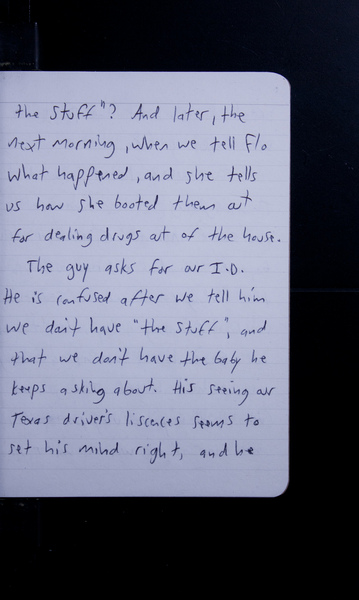 the stuff"? And later, the
next morning, when we tell Flo
what happened, and she tells
us how she booted them out
for dealing drugs out of the house.
The guy asks for our I.D.
He is confused after we tell him
we don't have "the stuff", and
that we don't have the baby he
keeps asking about. His seeing our
Texas driver's liscences seems to
set his mind right, and he